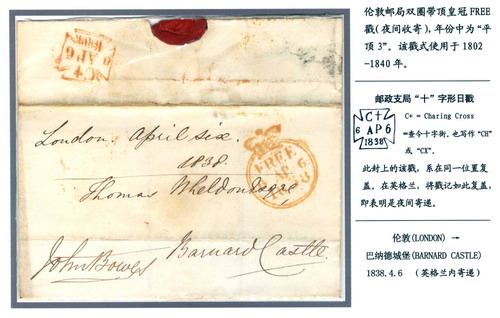 伦敦邮局双圈带顶皇冠FREE
戳(夜间收寄),年份中为“平
顶3”。该戳式使用于1802
-1840年。
邮政支局“十”字形日戳
C+
6 AP 6
1838
C+ = Charing Cross
=查令十字街,也写作“CH”
或 “CX”。
此封上的该戳,系在同一位置复
盖。在英格兰,将戳记如此复盖,
即表明是夜间寄递。
伦敦(LONDON) →
巴纳德城堡(BARNARD CASTLE)
1838.4.6 (英格兰内寄递)
C+
AP
London April six.
1838.
Thomas Wheldon Esqre
Barnard Castle.
John Bowes
FREE